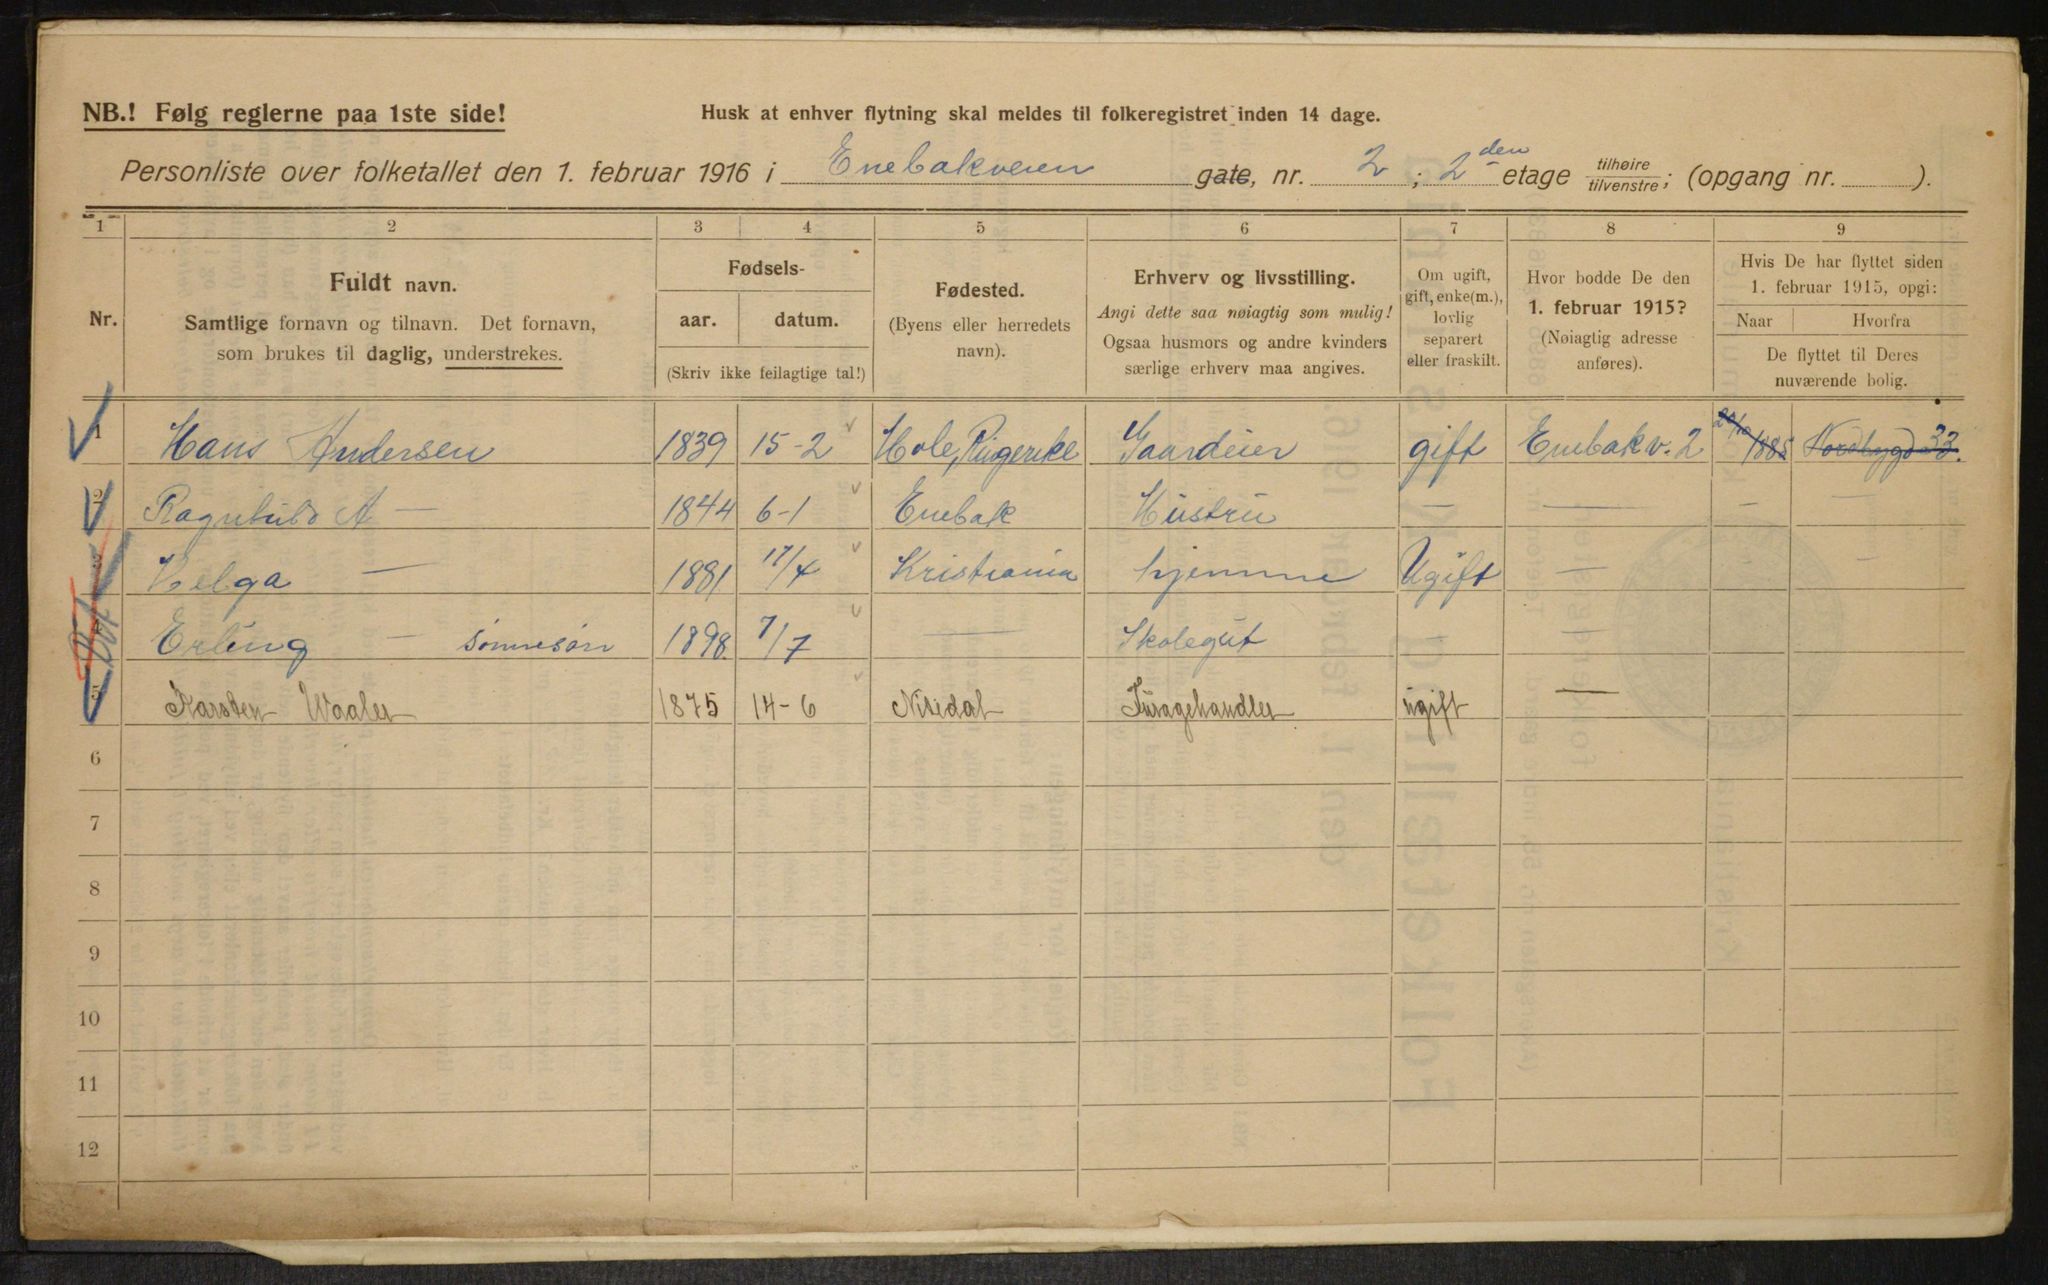 NB.! Følg reglerne paa 1ste side!
Husk at enhver flytning skal meldes til folkeregistret inden 14 dage.
Personliste over folketallet den 1. februar 1916 i Enebakveien gate, nr. 2 ; 2den etage tilhøire/tilvenstre; (opgang nr. ).
1 2 3 4 5 6 7 8 9
Nr.
Fuldt navn.
Samtlige fornavn og tilnavn. Det fornavn,
som brukes til daglig, understrekes.
Fødsels-
aar. datum.
(Skriv ikke feilagtige tal!)
Fødested.
(Byens eller herredets
navn).
Erhverv og livsstilling.
Angi dette saa nøiagtig som mulig!
Ogsaa husmors og andre kvinders
særlige erhverv maa angives.
Om ugift,
gift, enke(m.),
lovlig
separert
eller fraskilt.
Hvor bodde De den
1. februar 1915?
(Nøiagtig adresse
anføres).
Hvis De har flyttet siden
1. februar 1915, opgi:
Naar Hvorfra
De flyttet til Deres
nuværende bolig.
1 Hans Andersen 1839 15-2 Hole, Ringerike Gaardeier gift Enebakv. 2 /1885 Nordbygd 33.
2 Ragnhild A — 1844 6-1 Enebak Hustru — — — —
3 Helga — 1881 17/4 Kristiania hjemme Ugift — —
4 Erling — sønnesøn 1898. 7/7 — Skolegut — —
5 Karsten Waaler 1875 14-6 Nitedal Furagehandler ugift —
6
7
8
9
10
11
12